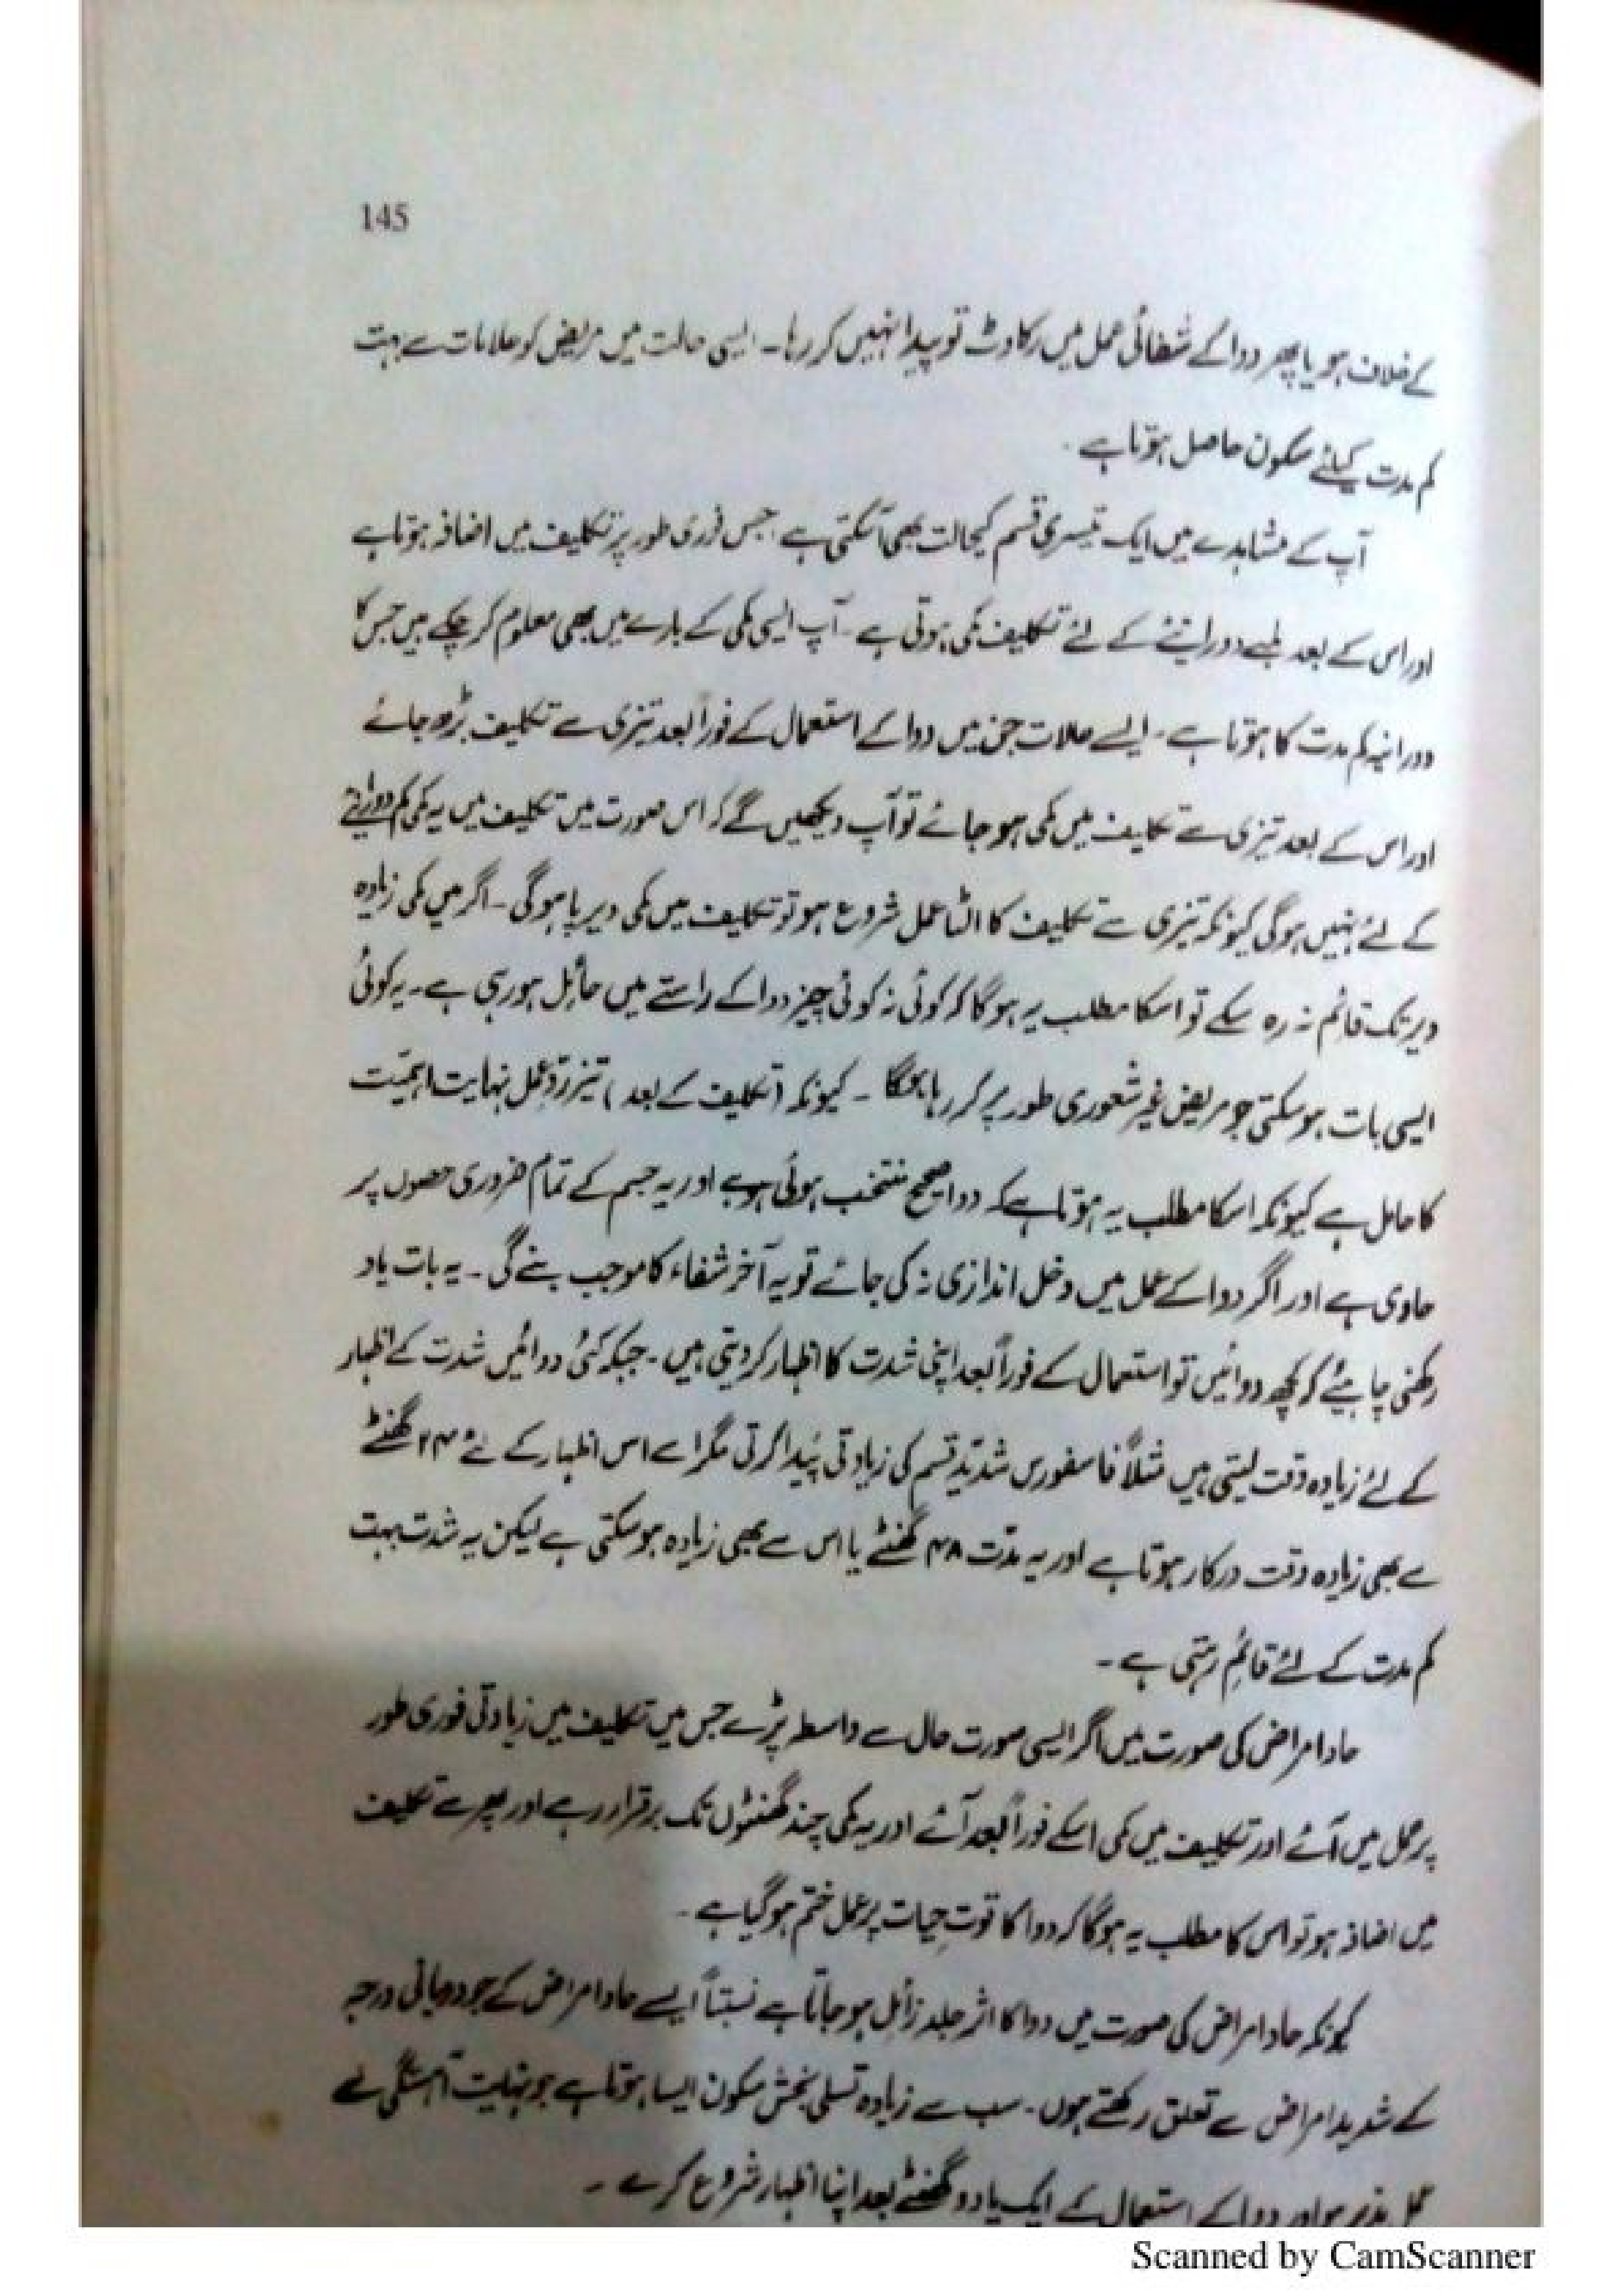 145
کے خلاف ہو یا پھر دوا کے شفائی عمل میں رکاوٹ تو پیدا نہیں کر رہا۔ ایسی حالت میں مریض کو علامات سے بہت
کم مدت کیلئے سکون حاصل ہوتا ہے۔
آپ کے مشاہدے میں ایک تیسری قسم کیحالت بھی آسکتی ہے جس فوری طور پر تکلیف میں اضافہ ہوتا ہے
اور اس کے بعد لمبے دورانیئے کے لئے تکلیف کمی ہوتی ہے۔ آپ ایسی کمی کے بارے میں بھی معلوم کر چکے ہیں جس کا
دورانیہ کم مدت کا ہوتا ہے۔ ایسے حالات جن میں دوا کے استعمال کے فوراً بعد تیزی سے تکلیف بڑھ جائے
اور اس کے بعد تیزی سے تکلیف میں کمی ہو جائے تو آپ دیکھیں گے کہ اس صورت میں تکلیف میں یہ کمی کم دورانیئے
کے لئے نہیں ہوگی کیونکہ تیزی سے تکلیف کا الٹا عمل شروع ہو تو تکلیف میں کمی دیرپا ہوگی۔ اگر میں کمی زیادہ
دیر تک قائم نہ رہ سکے تو اسکا مطلب یہ ہوگا کہ کوئی نہ کوئی چیز دوا کے راستے میں حائل ہو رہی ہے۔ یہ کوئی
ایسی بات ہو سکتی جو مریض غیر شعوری طور پر کر رہا ہوگا۔ کیونکہ (تکلیف کے بعد) تیز ردِّعمل نہایت اہمیّت
کا حامل ہے کیونکہ اسکا مطلب یہ ہوتا ہے کہ دوا صحیح منتخب ہوئی ہے اور یہ جسم کے تمام ضروری حصوں پر
حاوی ہے اور اگر دوا کے عمل میں دخل اندازی نہ کی جائے تو یہ آخر شفاء کا موجب بنے گی۔ یہ بات یاد
رکھنی چاہیئے کہ کچھ دوائیں تو استعمال کے فوراً بعد اپنی شدت کا اظہار کر دیتی ہیں۔ جبکہ کئی دوائیں شدت کے اظہار
کے لئے زیادہ وقت لیتی ہیں مثلاً فاسفورس شدید قسم کی زیادتی پیدا کرتی مگر اسے اس اظہار کے لئے ۲۴ گھنٹے
سے بھی زیادہ وقت درکار ہوتا ہے اور یہ مدّت ۴۸ گھنٹے یا اس سے بھی زیادہ ہو سکتی ہے لیکن یہ شدت بہت
کم مدت کے لئے قائم رہتی ہے۔
حاد امراض کی صورت میں اگر ایسی صورت حال سے واسطہ پڑے جس میں تکلیف میں زیادتی فوری طور
پر عمل میں آئے اور تکلیف میں کمی اسکے فوراً بعد آئے اور یہ کمی چند گھنٹوں تک برقرار رہے اور پھر سے تکلیف
میں اضافہ ہو تو اس کا مطلب یہ ہوگا کہ دوا کا قوتِ حیات پر عمل ختم ہو گیا ہے۔
کیونکہ حاد امراض کی صورت میں دوا کا اثر جلد زائل ہو جاتا ہے نسبتاً ایسے حاد امراض کے جو درمیانی درجہ
کے شدید امراض سے تعلق رکھتے ہوں۔ سب سے زیادہ تسلی بخش سکون ایسا ہوتا ہے جو نہایت آہستگی سے
عمل پذیر ہو اور دوا کے استعمال کے ایک یا دو گھنٹے بعد اپنا اظہار شروع کرے۔
Scanned by CamScanner